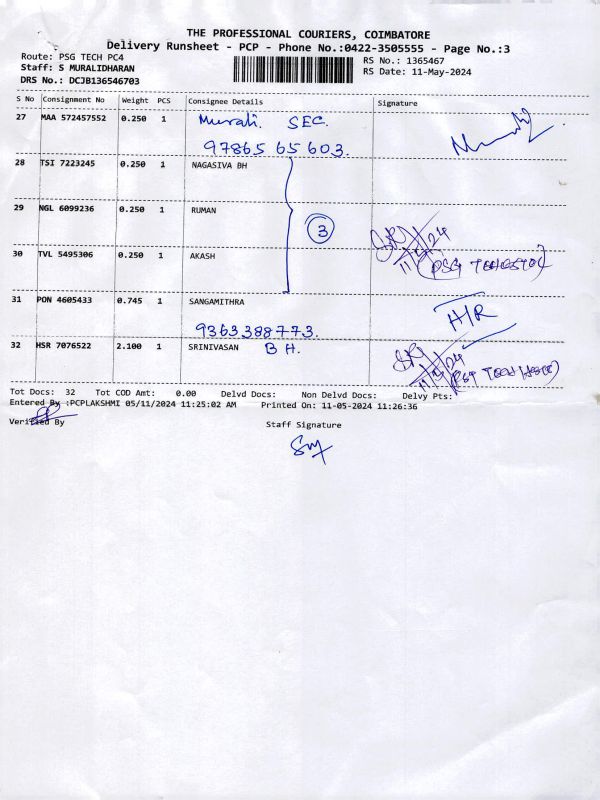 THE PROFESSIONAL COURIERS, COIMBATORE
Delivery Runsheet - PCP - Phone No.:0422-3505555 - Page No.:3
Route: PSG TECH PC4 RS No.: 1365467
Staff: S MURALIDHARAN RS Date: 11-May-2024
DRS No.: DCJB136546703
S No Consignment No Weight PCS Consignee Details Signature
27 MAA 572457552 0.250 1 Murali. SEC.
97865 65 603.
28 TSI 7223245 0.250 1 NAGASIVA BH
29 NGL 6099236 0.250 1 RUMAN
3
30 TVL 5495306 0.250 1 AKASH
31 PON 4605433 0.745 1 SANGAMITHRA
9363388773. H/R
32 HSR 7076522 2.100 1 SRINIVASAN B H.
Tot Docs: 32 Tot COD Amt: 0.00 Delvd Docs: Non Delvd Docs: Delvy Pts:
Entered By :PCPLAKSHMI 05/11/2024 11:25:02 AM Printed On: 11-05-2024 11:26:36
Verified By Staff Signature